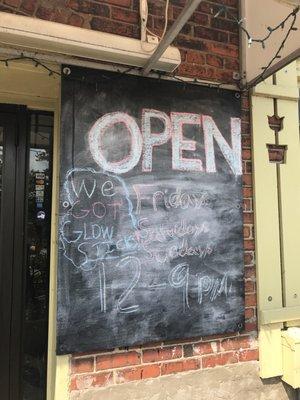 OPEN
We
GOT
GLOW
STICKS
Fridays
Saturdays
Sundays
12-9pm